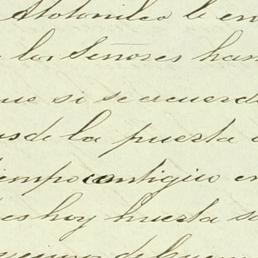 Atotonilco le en
los Señores han
que si se acuerda
desde la puerta
tiempo contiguo en
es hoy huerta